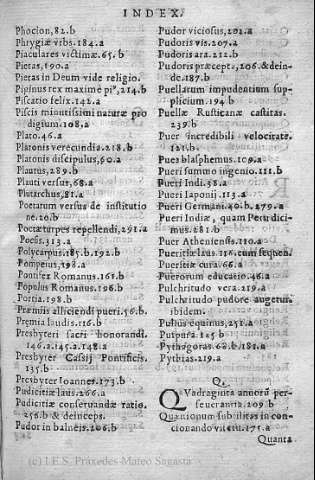 INDEX.
Phocion, 82.b
Phrygiæ vrbs. 184.a
Piaculares victimæ. 65.b
Pietas, 190.a
Pietas in Deum vide religio.
Pipinus rex maximè piꝰ, 214.b
Piscatio felix. 142.a
Piscis minutissimi naturæ pro
digium. 108,a
Plato. 46.a
Platonis verecundia. 218.b
Platonis discipulus, 60.a
Plautus, 289.b
Plauti versus, 68.a
Plutarchus, 81.a
Poetarum versus de institutio
ne. 20.b
Poctæ turpes repellendi, 291.a
Poesis. 313.a
Polycarpus. 185.b. 192.b
Pompeius, 198.a
Pontifex Romanus. 161.b
Populus Romanus, 196.b
Portia. 198.b
Præmiis alliciendi pueri. 56.b.
Præmia laudis. 116.b
Presbyteri sacri honorandi.
146.a. 145.a. 148.a
Presbyter Cassij Pontificis.
135.b.
Presbyter Ioannes. 173.b
Pudicitiæ laus. 266.a
Pudicitiæ conseruandæ ratio.
256.b & deinceps.
Pudor in balneis. 206.b
Pudor viciosus, 202.a
Pudoris vis. 207.a
Pudoris ara. 212.b
Pudoris præcept., 206. & dein-
de. 187.b
Puellarum impudentium sup
plicium. 194.b
Puellæ Rusticanæ castitas.
239.b
Puer incredibili velocitate.
121.b.
Puer blasphemus. 109.a
Pueri summo ingenio. 111.b
Pueri Indi. 58.a
Pueri Iaponij. 113.a
Pueri Germani. 40.b. 279.a
Pueri Indiæ, quam Peru dici
mus. 281.b
Puer Atheniensis. 110.a
Pueritiæ laus. 116. cum sequen.
Pueritiæ cura. 66.a
Puerorum educatio. 46.a
Pulchritudo vera. 219.a
Pulchritudo pudore augetur.
ibidem.
Pullus equinus, 251.a
Purpura 145.b
Pythagoras. 62.b. 181.a
Pythias. 219.a
Q.
QVadraginta annorũ per-
seuerantia. 209.b
Quantopum subtilitas in con-
cionando vitetur. 175.a
Quanta
(c) I.E.S. Práxedes Mateo Sagasta